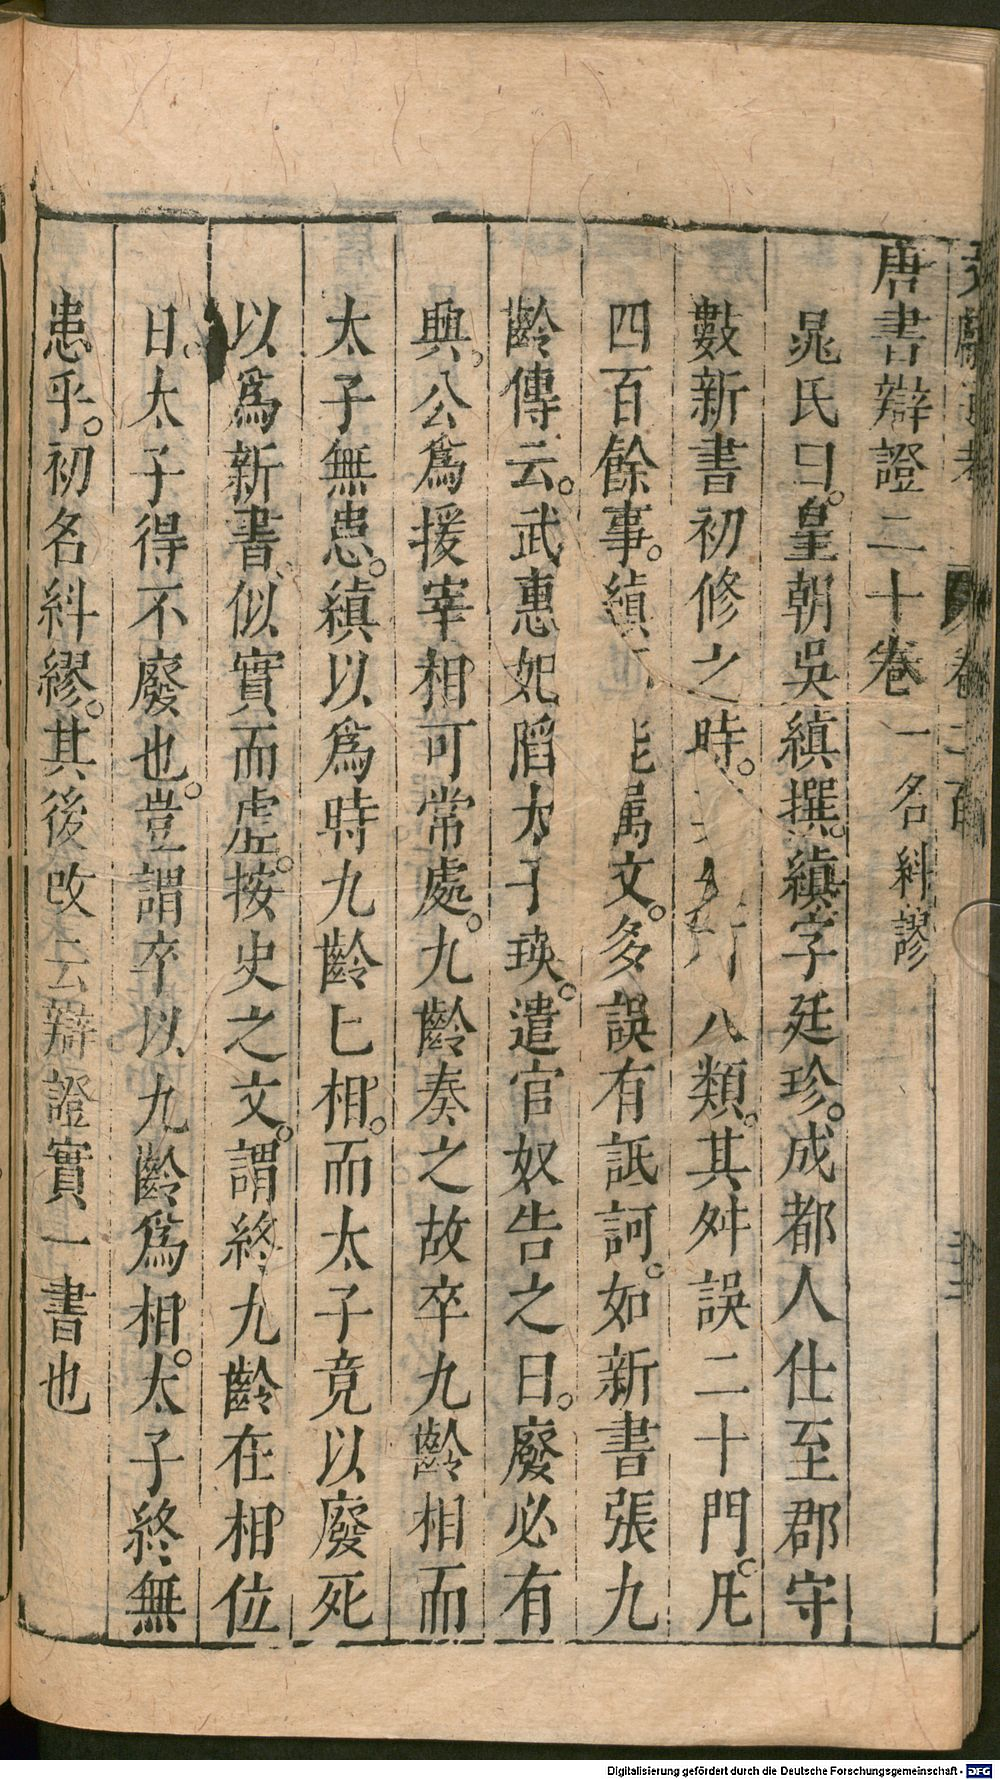 文獻通考 卷二百
唐書辯證二十卷 一名糾謬
晁氏曰。皇朝吳縝撰。縝字廷珍。成都人仕至郡守
數新書初修之時。 八類。其舛誤二十門。凡
四百餘事。縝 能屬文。多誤有詆訶。如新書張九
齡傳云。武惠妃䧟太子瑛。遣官奴告之日。廢必有
興。公爲援宰相可常處。九齡奏之故卒九齡相而
太子無患。縝以爲時九齡已相。而太子竟以廢死
以爲新書似實而虛。按史之文。謂終九齡在相位
日。太子得不廢也。豈謂卒以九齡爲相。太子終無
患乎。初名糾繆。其後改云辯證實一書也
Digitalisierung gefördert durch die Deutsche Forschungsgemeinschaft - DFG